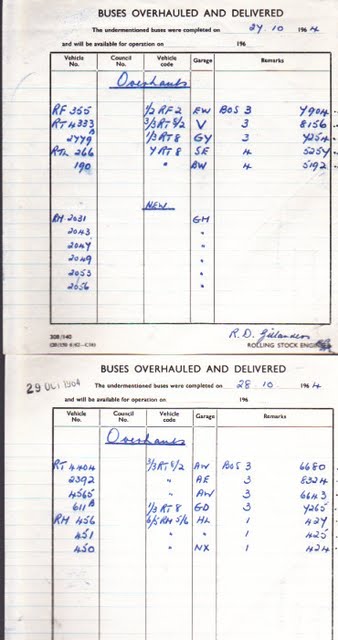 BUSES OVERHAULED AND DELIVERED
The undermentioned buses were completed on 27.10 1964
and will be available for operation on 196
Vehicle No. Council No. Vehicle code Garage Remarks
Overhauls
RF 355 1/2 RF 2 EW BOS 3 7904
RT 4333 3/3 RT 8/2 V 3 8156
2779 A 1/3 RT 8 GY 3 7254
RTL 266 7 RT 8 SE 4 5257
190 " BW 4 5192
NEW
RM 2031 GM
2043 "
2047 "
2049 "
2053 "
2056 "
308/140
R.D.
ROLLING STOCK
BUSES OVERHAULED AND DELIVERED
29 OCT 1964
The undermentioned buses were completed on 28 10 1964
and will be available for operation on 196
Vehicle No. Council No. Vehicle code Garage Remarks
Overhauls
RT 4404 3/3 RT 8/2 AW BOS 3 6680
2392 " AE 3 8324
4565 " AW 3 6643
611 A 1/3 RT 8 GD 3 7265
RM 456 6/5 RM 5/6 HL 1 427
451 " " 1 425
450 " NX 1 424